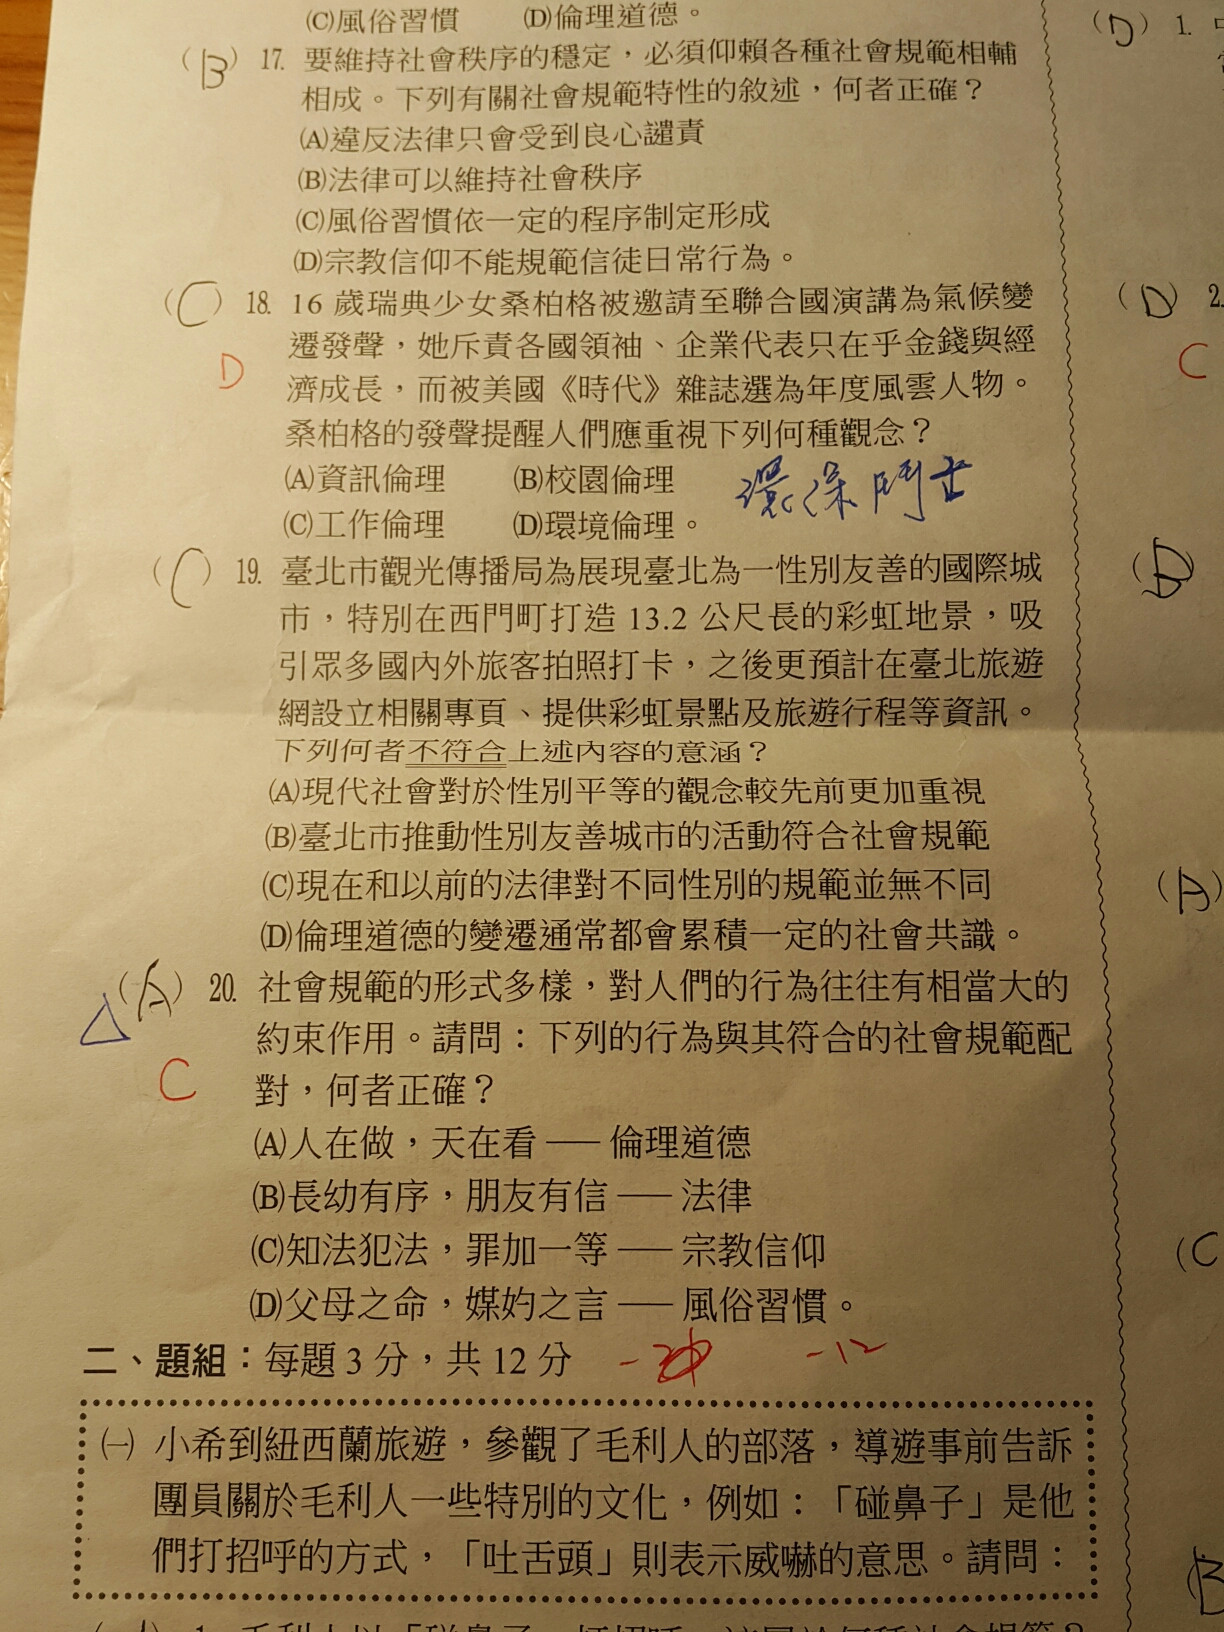 (C)風俗習慣 (D)倫理道德。
(B) 17. 要維持社會秩序的穩定，必須仰賴各種社會規範相輔
相成。下列有關社會規範特性的敘述，何者正確？
(A)違反法律只會受到良心譴責
(B)法律可以維持社會秩序
(C)風俗習慣依一定的程序制定形成
(D)宗教信仰不能規範信徒日常行為。
(C) 18. 16 歲瑞典少女桑柏格被邀請至聯合國演講為氣候變
遷發聲，她斥責各國領袖、企業代表只在乎金錢與經
D
濟成長，而被美國《時代》雜誌選為年度風雲人物。
桑柏格的發聲提醒人們應重視下列何種觀念？
(A)資訊倫理 (B)校園倫理
環保鬥士
(C)工作倫理 (D)環境倫理。
(C) 19. 臺北市觀光傳播局為展現臺北為一性別友善的國際城
市，特別在西門町打造 13.2 公尺長的彩虹地景，吸
引眾多國內外旅客拍照打卡，之後更預計在臺北旅遊
網設立相關專頁、提供彩虹景點及旅遊行程等資訊。
下列何者不符合上述內容的意涵？
(A)現代社會對於性別平等的觀念較先前更加重視
(B)臺北市推動性別友善城市的活動符合社會規範
(C)現在和以前的法律對不同性別的規範並無不同
(D)倫理道德的變遷通常都會累積一定的社會共識。
(A) 20. 社會規範的形式多樣，對人們的行為往往有相當大的
約束作用。請問：下列的行為與其符合的社會規範配
C
對，何者正確？
(A)人在做，天在看 — 倫理道德
(B)長幼有序，朋友有信 — 法律
(C)知法犯法，罪加一等 — 宗教信仰
(D)父母之命，媒妁之言 — 風俗習慣。
二、題組：每題 3 分，共 12 分
-12
(一) 小希到紐西蘭旅遊，參觀了毛利人的部落，導遊事前告訴
團員關於毛利人一些特別的文化，例如：「碰鼻子」是他
們打招呼的方式，「吐舌頭」則表示威嚇的意思。請問：
(D) 1.
(D) 2.
C
(D)
(A)
(C
(B